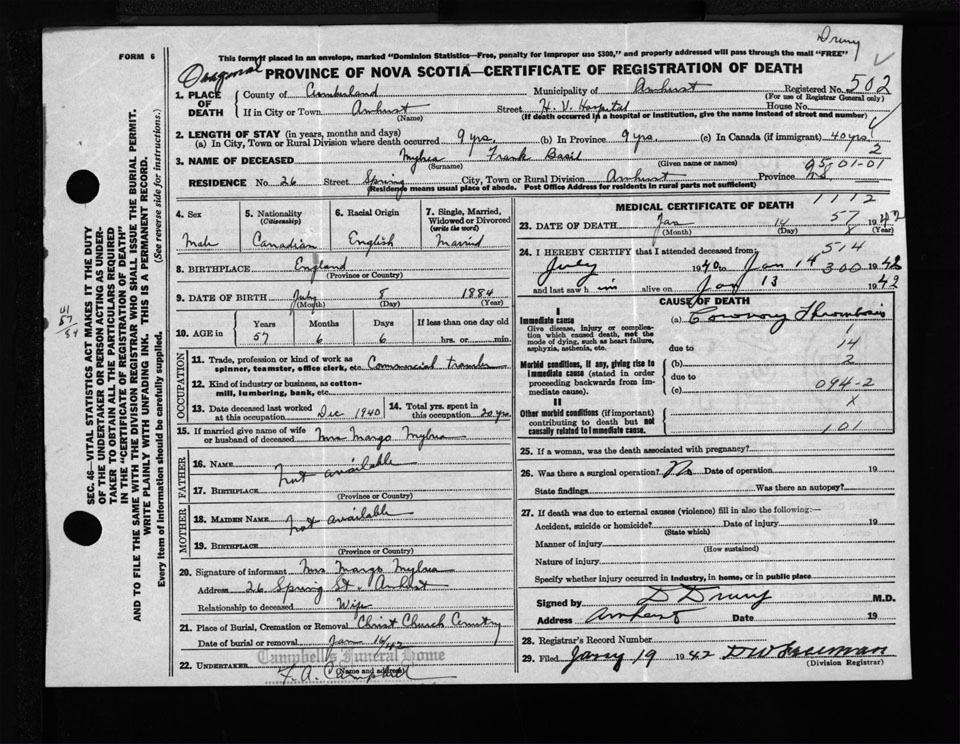 Drury
FORM 6
This form if placed in an envelope, marked "Dominion Statistics—Free, penalty for improper use $300," and properly addressed will pass through the mail "FREE"
PROVINCE OF NOVA SCOTIA—CERTIFICATE OF REGISTRATION OF DEATH
1. PLACE OF DEATH
County of Cumberland Municipality of Amherst Registered No. 502
(For use of Registrar General only)
If in City or Town Amherst Street H. V. Hospital House No.
(Name) (If death occurred in a hospital or institution, give the name instead of street and number)
2. LENGTH OF STAY (in years, months and days)
(a) In City, Town or Rural Division where death occurred 9 yrs. (b) In Province 9 yrs. (c) In Canada (if immigrant) 40 yrs.
2
3. NAME OF DECEASED Mylrea Frank Basil
(Surname) (Given name or names)
95 01-01
RESIDENCE No. 26 Street Spring City, Town or Rural Division Amherst Province N.S.
(Residence means usual place of abode. Post Office Address for residents in rural parts not sufficient)
4. Sex Male
5. Nationality (Citizenship) Canadian
6. Racial Origin English
7. Single, Married, Widowed or Divorced (write the word) Married
8. BIRTHPLACE England
(Province or Country)
9. DATE OF BIRTH July 8 1884
(Month) (Day) (Year)
10. AGE in Years Months Days If less than one day old
57 6 6 hrs. or min.
OCCUPATION
11. Trade, profession or kind of work as spinner, teamster, office clerk, etc. Commercial traveler
12. Kind of industry or business, as cotton-mill, lumbering, bank, etc.
13. Date deceased last worked at this occupation Dec 1940
14. Total yrs. spent in this occupation 20 yrs.
15. If married give name of wife or husband of deceased Mrs Margo Mylrea
FATHER
16. NAME
Not available
17. BIRTHPLACE
(Province or Country)
MOTHER
18. MAIDEN NAME Not available
19. BIRTHPLACE
(Province or Country)
20. Signature of informant Mrs Margo Mylrea
Address 26 Spring St. Amherst
Relationship to deceased Wife
21. Place of Burial, Cremation or Removal Christ Church Cemetery
Date of burial or removal Jan 16/42
Campbell's Funeral Home
22. UNDERTAKER F. A. Campbell
(Name and address)
1112
MEDICAL CERTIFICATE OF DEATH
57
23. DATE OF DEATH Jan 14 1942
(Month) (Day) (Year)
8
24. I HEREBY CERTIFY that I attended deceased from: 514
July 1940 to Jan 14 300 1942
and last saw him alive on Jan 13 1942
CAUSE OF DEATH
I
Immediate cause (a) Coronary Thrombosis
Give disease, injury or complication which caused death, not the mode of dying, such as heart failure, asphyxia, asthenia, etc.
1
due to 14
Morbid conditions, if any, giving rise to immediate cause (stated in order proceeding backwards from immediate cause).
(b) 2
due to
(c) 094-2
II
x
Other morbid conditions (if important) contributing to death but not causally related to immediate cause. 101
25. If a woman, was the death associated with pregnancy?
26. Was there a surgical operation? No Date of operation 19
State findings Was there an autopsy?
27. If death was due to external causes (violence) fill in also the following:—
Accident, suicide or homicide? Date of injury 19
(State which)
Manner of injury
(How sustained)
Nature of injury
Specify whether injury occurred in industry, in home, or in public place
Signed by D Drury M.D.
Address Amherst Date 19
28. Registrar's Record Number
29. Filed Jany 19 1942 D W Freeman
(Division Registrar)
SEC. 46—VITAL STATISTICS ACT MAKES IT THE DUTY
OF THE UNDERTAKER OR PERSON ACTING AS UNDERTAKER TO OBTAIN ALL THE PARTICULARS REQUIRED
IN THE "CERTIFICATE OF REGISTRATION OF DEATH"
AND TO FILE THE SAME WITH THE DIVISION REGISTRAR WHO SHALL ISSUE THE BURIAL PERMIT.
WRITE PLAINLY WITH UNFADING INK. THIS IS A PERMANENT RECORD.
Every item of information should be carefully supplied. (See reverse side for instructions.)
41
57
54